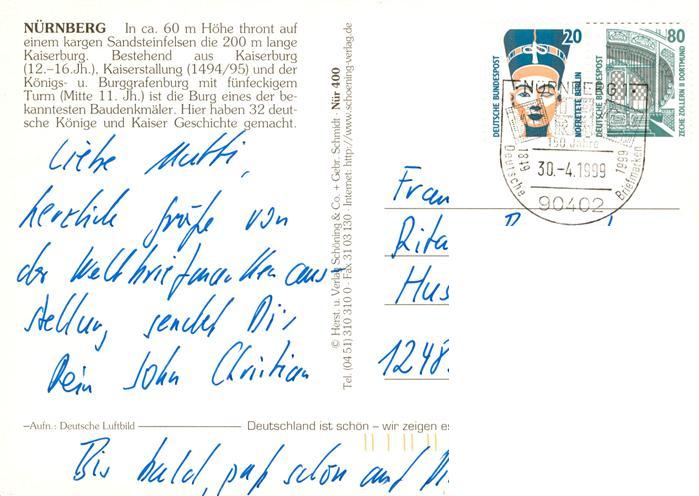 NÜRNBERG In ca. 60 m Höhe thront auf
einem kargen Sandsteinfelsen die 200 m lange
Kaiserburg. Bestehend aus Kaiserburg
(12.–16.Jh.), Kaiserstallung (1494/95) und der
Königs- u. Burggrafenburg mit fünfeckigem
Turm (Mitte 11. Jh.) ist die Burg eines der be-
kanntesten Baudenkmäler. Hier haben 32 deut-
sche Könige und Kaiser Geschichte gemacht.
Liebe Mutti,
herzlich grüße von
der Weltbriefmarkenaus-
stellung sendet Dir
Dein John Christian
–Aufn.: Deutsche Luftbild
Deutschland ist schön – wir zeigen es
Bis bald, paß schön auf
© Herst. u. Verlag Schöning & Co. + Gebr. Schmidt · Nür 400
Tel. (04 51) 310 310 0 · Fax 31 03 130 · Internet: http://www.schoening-verlag.de
20
DEUTSCHE BUNDESPOST
NOFRETETE BERLIN
80
DEUTSCHE BUNDESPOST
ZECHE ZOLLERN II DORTMUND
NÜRNBERG 1
150 Jahre
Deutsche
Briefmarken
1849
1999
30.-4.1999
90402
Frau
Rita
Hus
1248